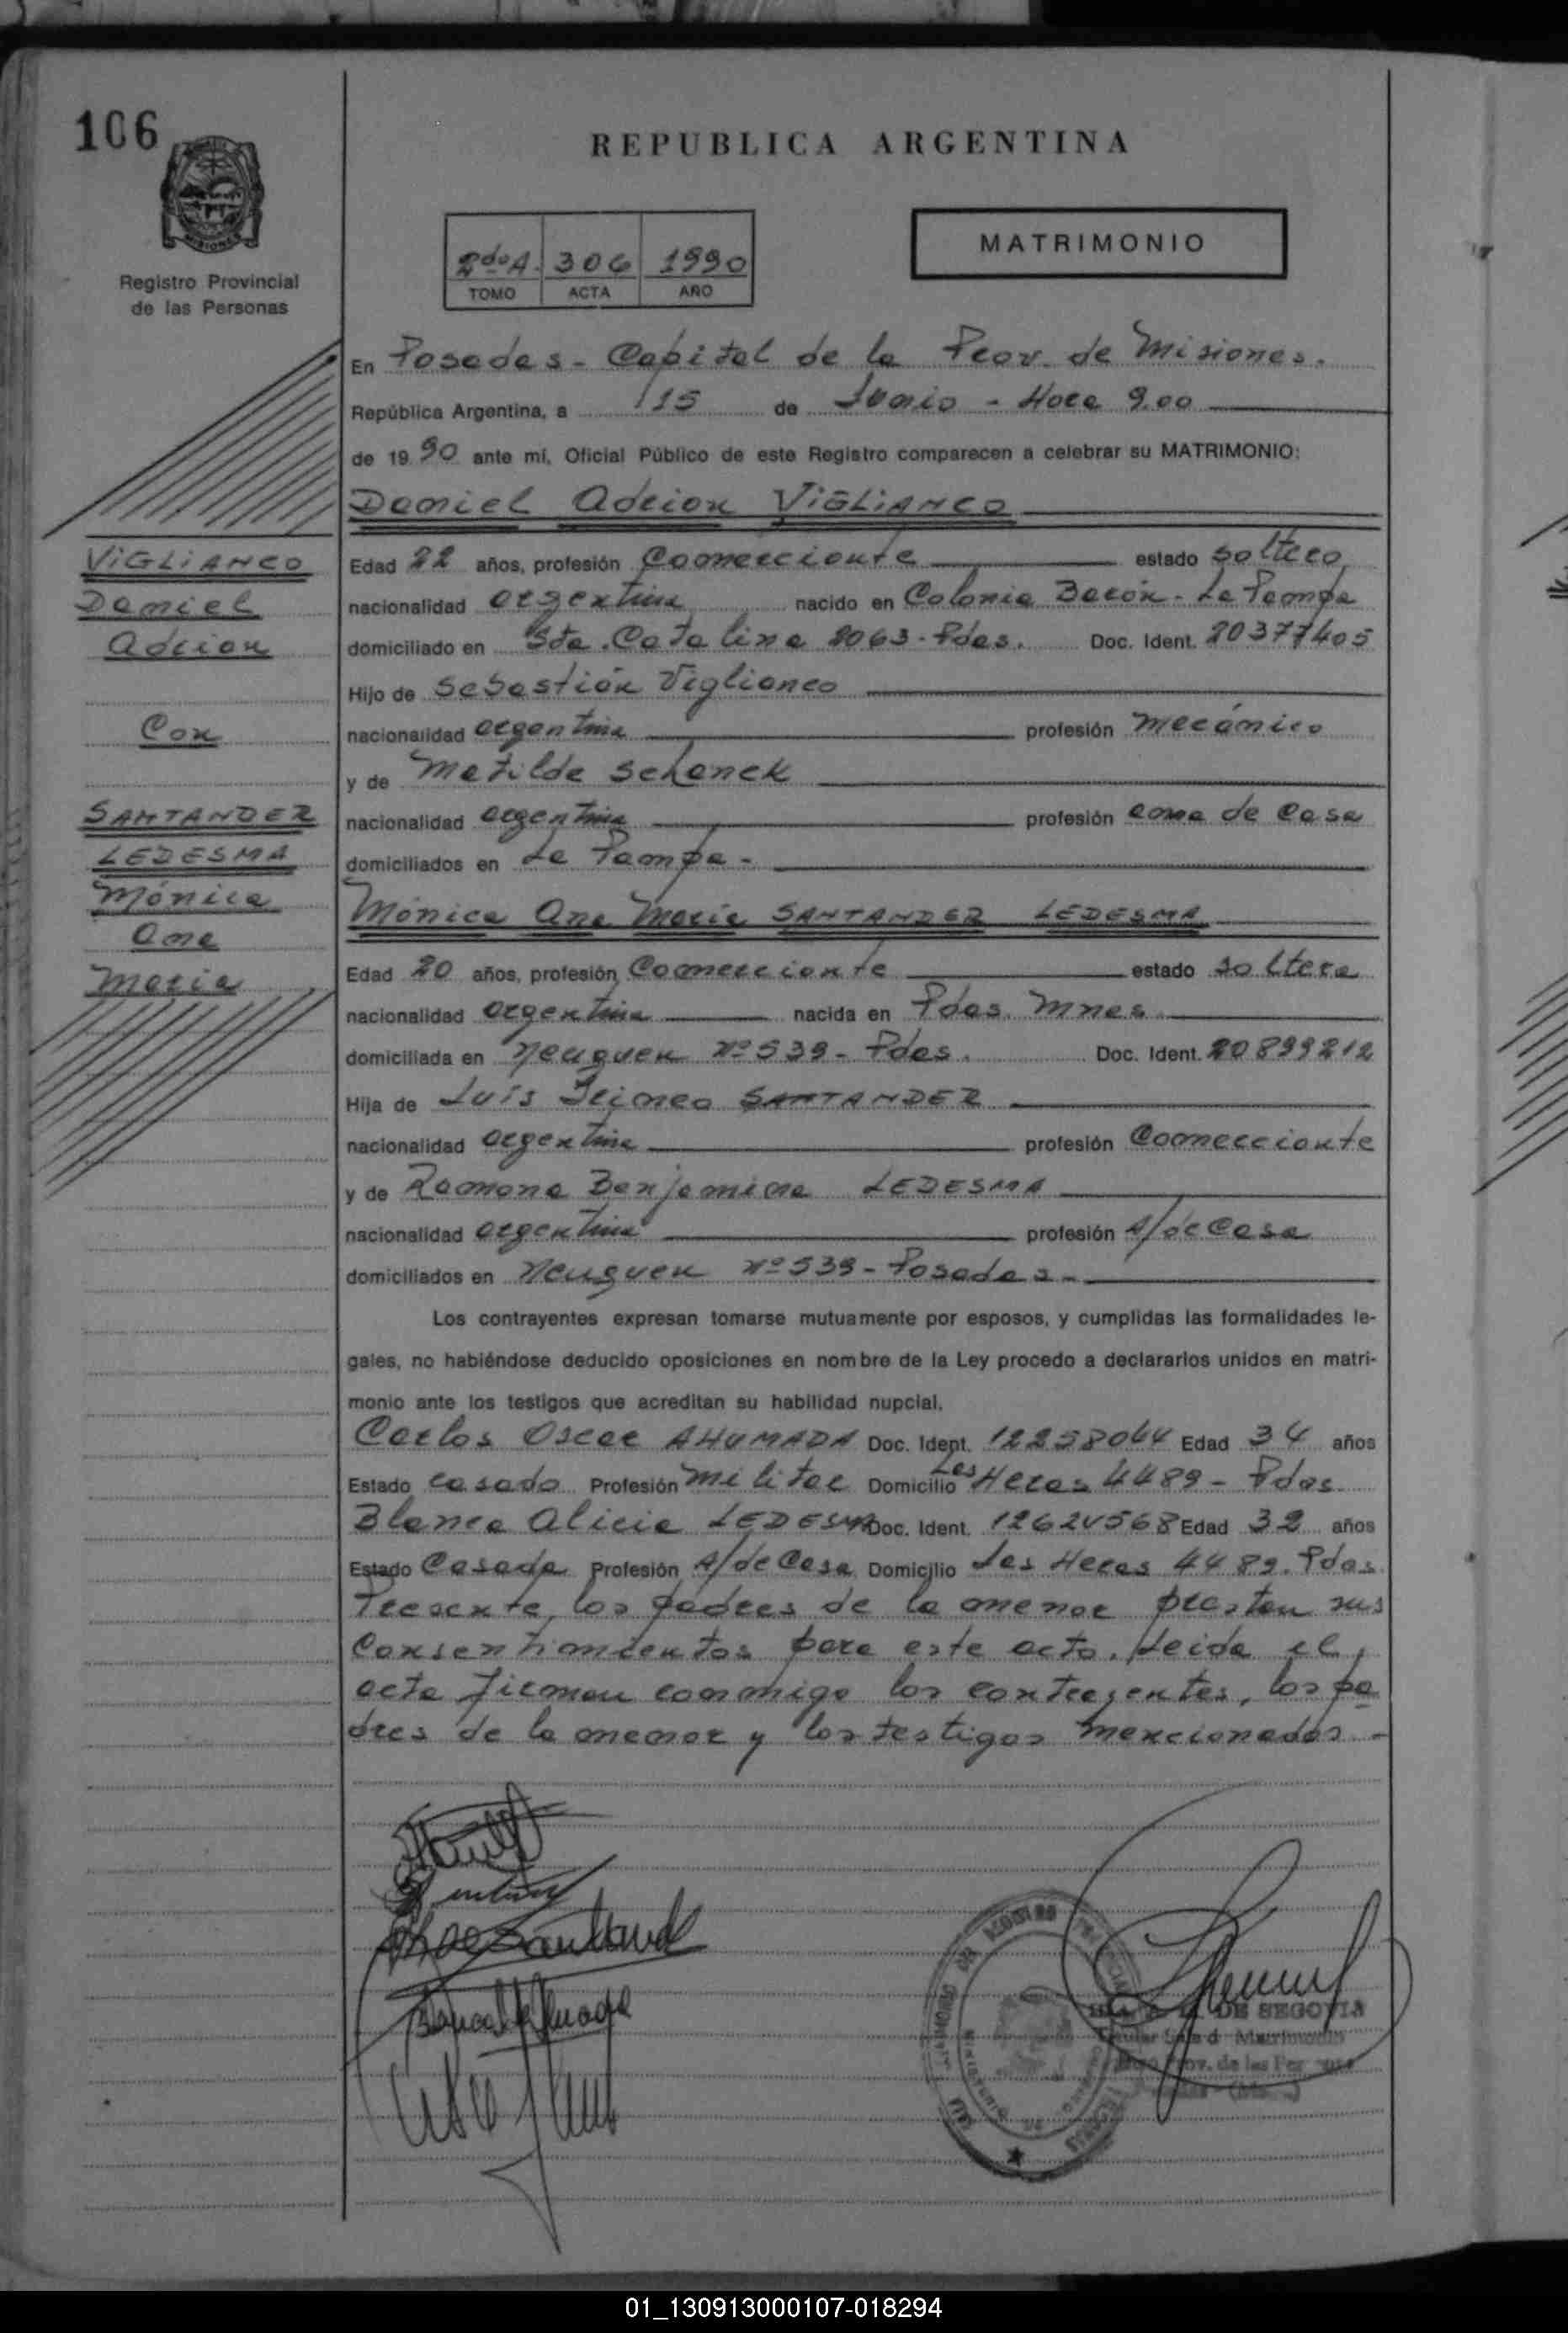 106
REPUBLICA ARGENTINA
MISIONES
Registro Provincial
de las Personas
2do A. 306 1990
TOMO ACTA AÑO
MATRIMONIO
En Posadas - Capital de la Prov. de Misiones.
República Argentina, a 15 de Junio - Hora 9.00
de 1990 ante mí, Oficial Público de este Registro comparecen a celebrar su MATRIMONIO:
Daniel Adrian VIGLIANCO
VIGLIANCO
Daniel
Adrian
Con
SANTANDER
LEDESMA
Mónica
Ana
Maria
Edad 22 años, profesión Comerciante estado soltero
nacionalidad argentina nacido en Colonia Barón - La Pampa
domiciliado en Sta. Catalina 2063 - Pdas. Doc. Ident. 20377405
Hijo de Sebastián Viglianco
nacionalidad argentina profesión mecánico
y de Matilde Schenek
nacionalidad argentina profesión ama de casa
domiciliados en La Pampa -
Mónica Ana Maria SANTANDER LEDESMA
Edad 20 años, profesión Comerciante estado soltera
nacionalidad argentina nacida en Pdas. Mnes.
domiciliada en Neuquen Nº 539 - Pdas. Doc. Ident. 20899212
Hija de Luís SANTANDER
nacionalidad argentina profesión Comerciante
y de Ramona Benjamina LEDESMA
nacionalidad argentina profesión A/de Casa
domiciliados en Neuquen Nº 539 - Posadas -
Los contrayentes expresan tomarse mutuamente por esposos, y cumplidas las formalidades le-
gales, no habiéndose deducido oposiciones en nombre de la Ley procedo a declararlos unidos en matri-
monio ante los testigos que acreditan su habilidad nupcial.
Carlos Oscar AHUMADA Doc. Ident. 12258064 Edad 34 años
Estado casado Profesión Militar Domicilio Las Heras 4489 - Pdas.
Blanca Alicia LEDESMA Doc. Ident. Edad 32 años
Estado Casada Profesión A/de Casa Domicilio Las Heras 4489. Pdas.
Presente los padres de la menor prestan sus
Consentimientos para este acto. Leida el
acta firman conmigo los contrayentes, los pa
dres de la menor y los testigos mencionados -
DE SEGOVIA
01_130913000107-018294